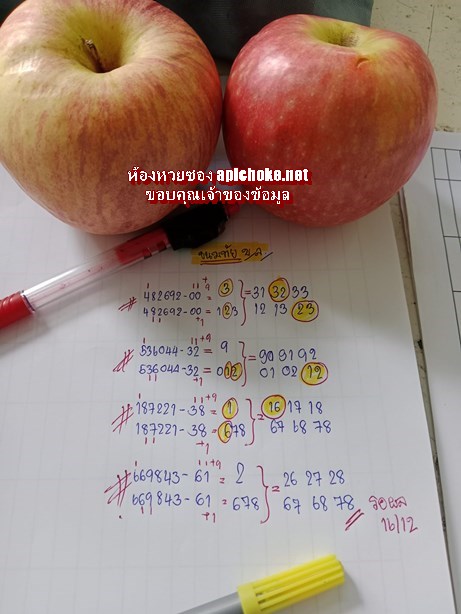 ห้องหวยซอง apichoke.net
ขอบคุณเจ้าของข้อมูล
# 482692-00 = 3 } = 31 32 33
482692-00 = 123 12 13 23
# 536044-32 = 9 } = 90 91 92
536044-32 = 012 01 02 12
# 187221-38 = 1 } = 16 17 18
187221-38 = 678 67 68 78
# 669843-61 = 2 } = 26 27 28
669843-61 = 678 67 68 78
รอผล
16/12